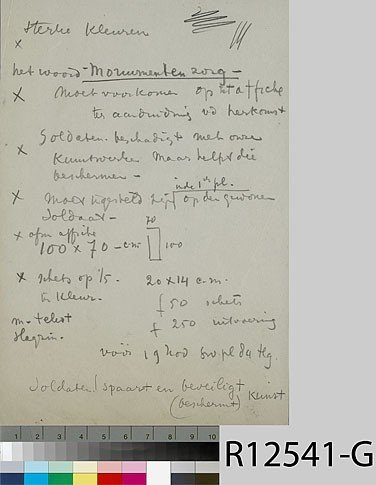 Sterke kleuren
x
het woord Monumentenzorg -
x moet voorkomen op het affiche
ter aanduiding v d herkomst
Soldaten beschadigt niet onze
x Kunstwerken maar helpt die
beschermen -
in de 1e pl.
x moet ingesteld zijn op den gewonen
Soldaat -
x afm affiche
100 x 70 - c.m.
70
100
x schets op 1/5. 20 x 14 c.m.
in kleur.
f 50 schets
m. tekst
slagzin.
f 250 uitvoering
vóór 19 Nov
Soldaten! spaart en beveiligt
(beschermt) Kunst
1 2 3 4 5 6 7 8 9 10
R12541-G